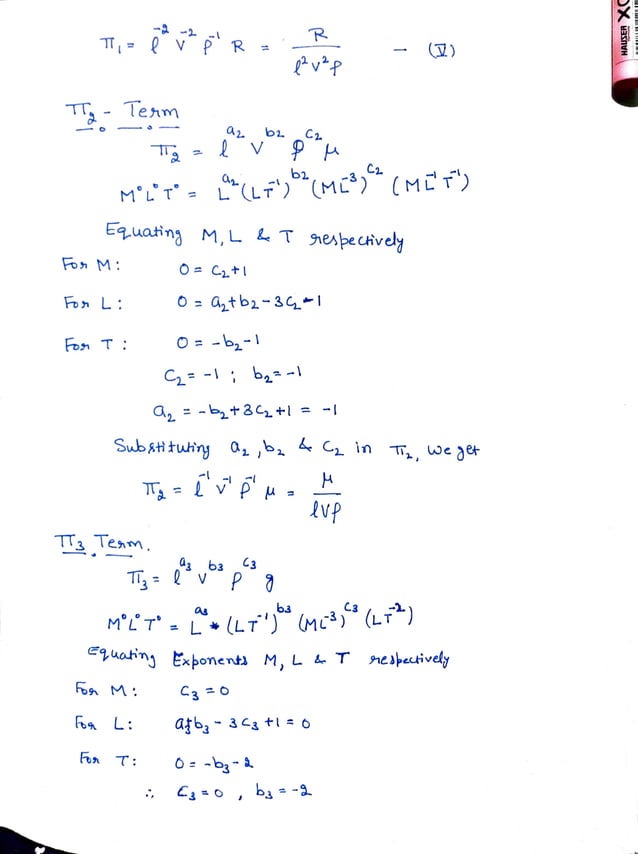 HAUSER XO
π₁ = l⁻² V⁻² ρ⁻¹ R = R / l²V²ρ — (V)
π₂ - Term
π₂ = l^a₂ V^b₂ ρ^c₂ μ
M⁰L⁰T⁰ = L^a₂ (LT⁻¹)^b₂ (ML⁻³)^c₂ (ML⁻¹T⁻¹)
Equating M, L & T respectively
For M: 0 = c₂+1
For L: 0 = a₂+b₂-3c₂-1
For T: 0 = -b₂-1
c₂ = -1 ; b₂ = -1
a₂ = -b₂+3c₂+1 = -1
Substituting a₂, b₂ & c₂ in π₂, we get
π₂ = l⁻¹ V⁻¹ ρ⁻¹ μ = μ / lVρ
π₃ Term.
π₃ = l^a₃ V^b₃ ρ^c₃ g
M⁰L⁰T⁰ = L^a₃ * (LT⁻¹)^b₃ (ML⁻³)^c₃ (LT⁻²)
Equating Exponents M, L & T respectively
For M: c₃ = 0
For L: a₃+b₃-3c₃+1 = 0
For T: 0 = -b₃-2
∴ c₃ = 0 , b₃ = -2